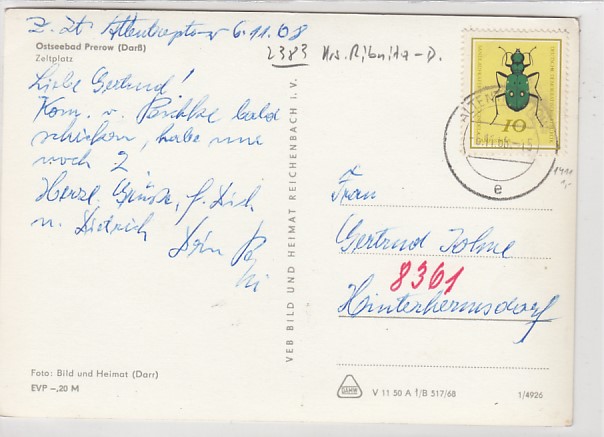 z. Zt. Altenkirchen 6.11.68
2383 Krs. Ribnitz-D.
Ostseebad Prerow (Darß)
Zeltplatz
Liebe Gertrud!
Kom. v. bald
schicken, habe nur
noch 2
Herzl. Grüße, f. Dich
u. Dietrich
Dein
VEB BILD UND HEIMAT REICHENBACH I. V.
10
6.11.68-15
e
1411
Frau
Gertrud
8361
Hinterhermsdorf
Foto: Bild und Heimat (Darr)
EVP -,20 M
V 11 50 A 1/B 517/68
1/4926